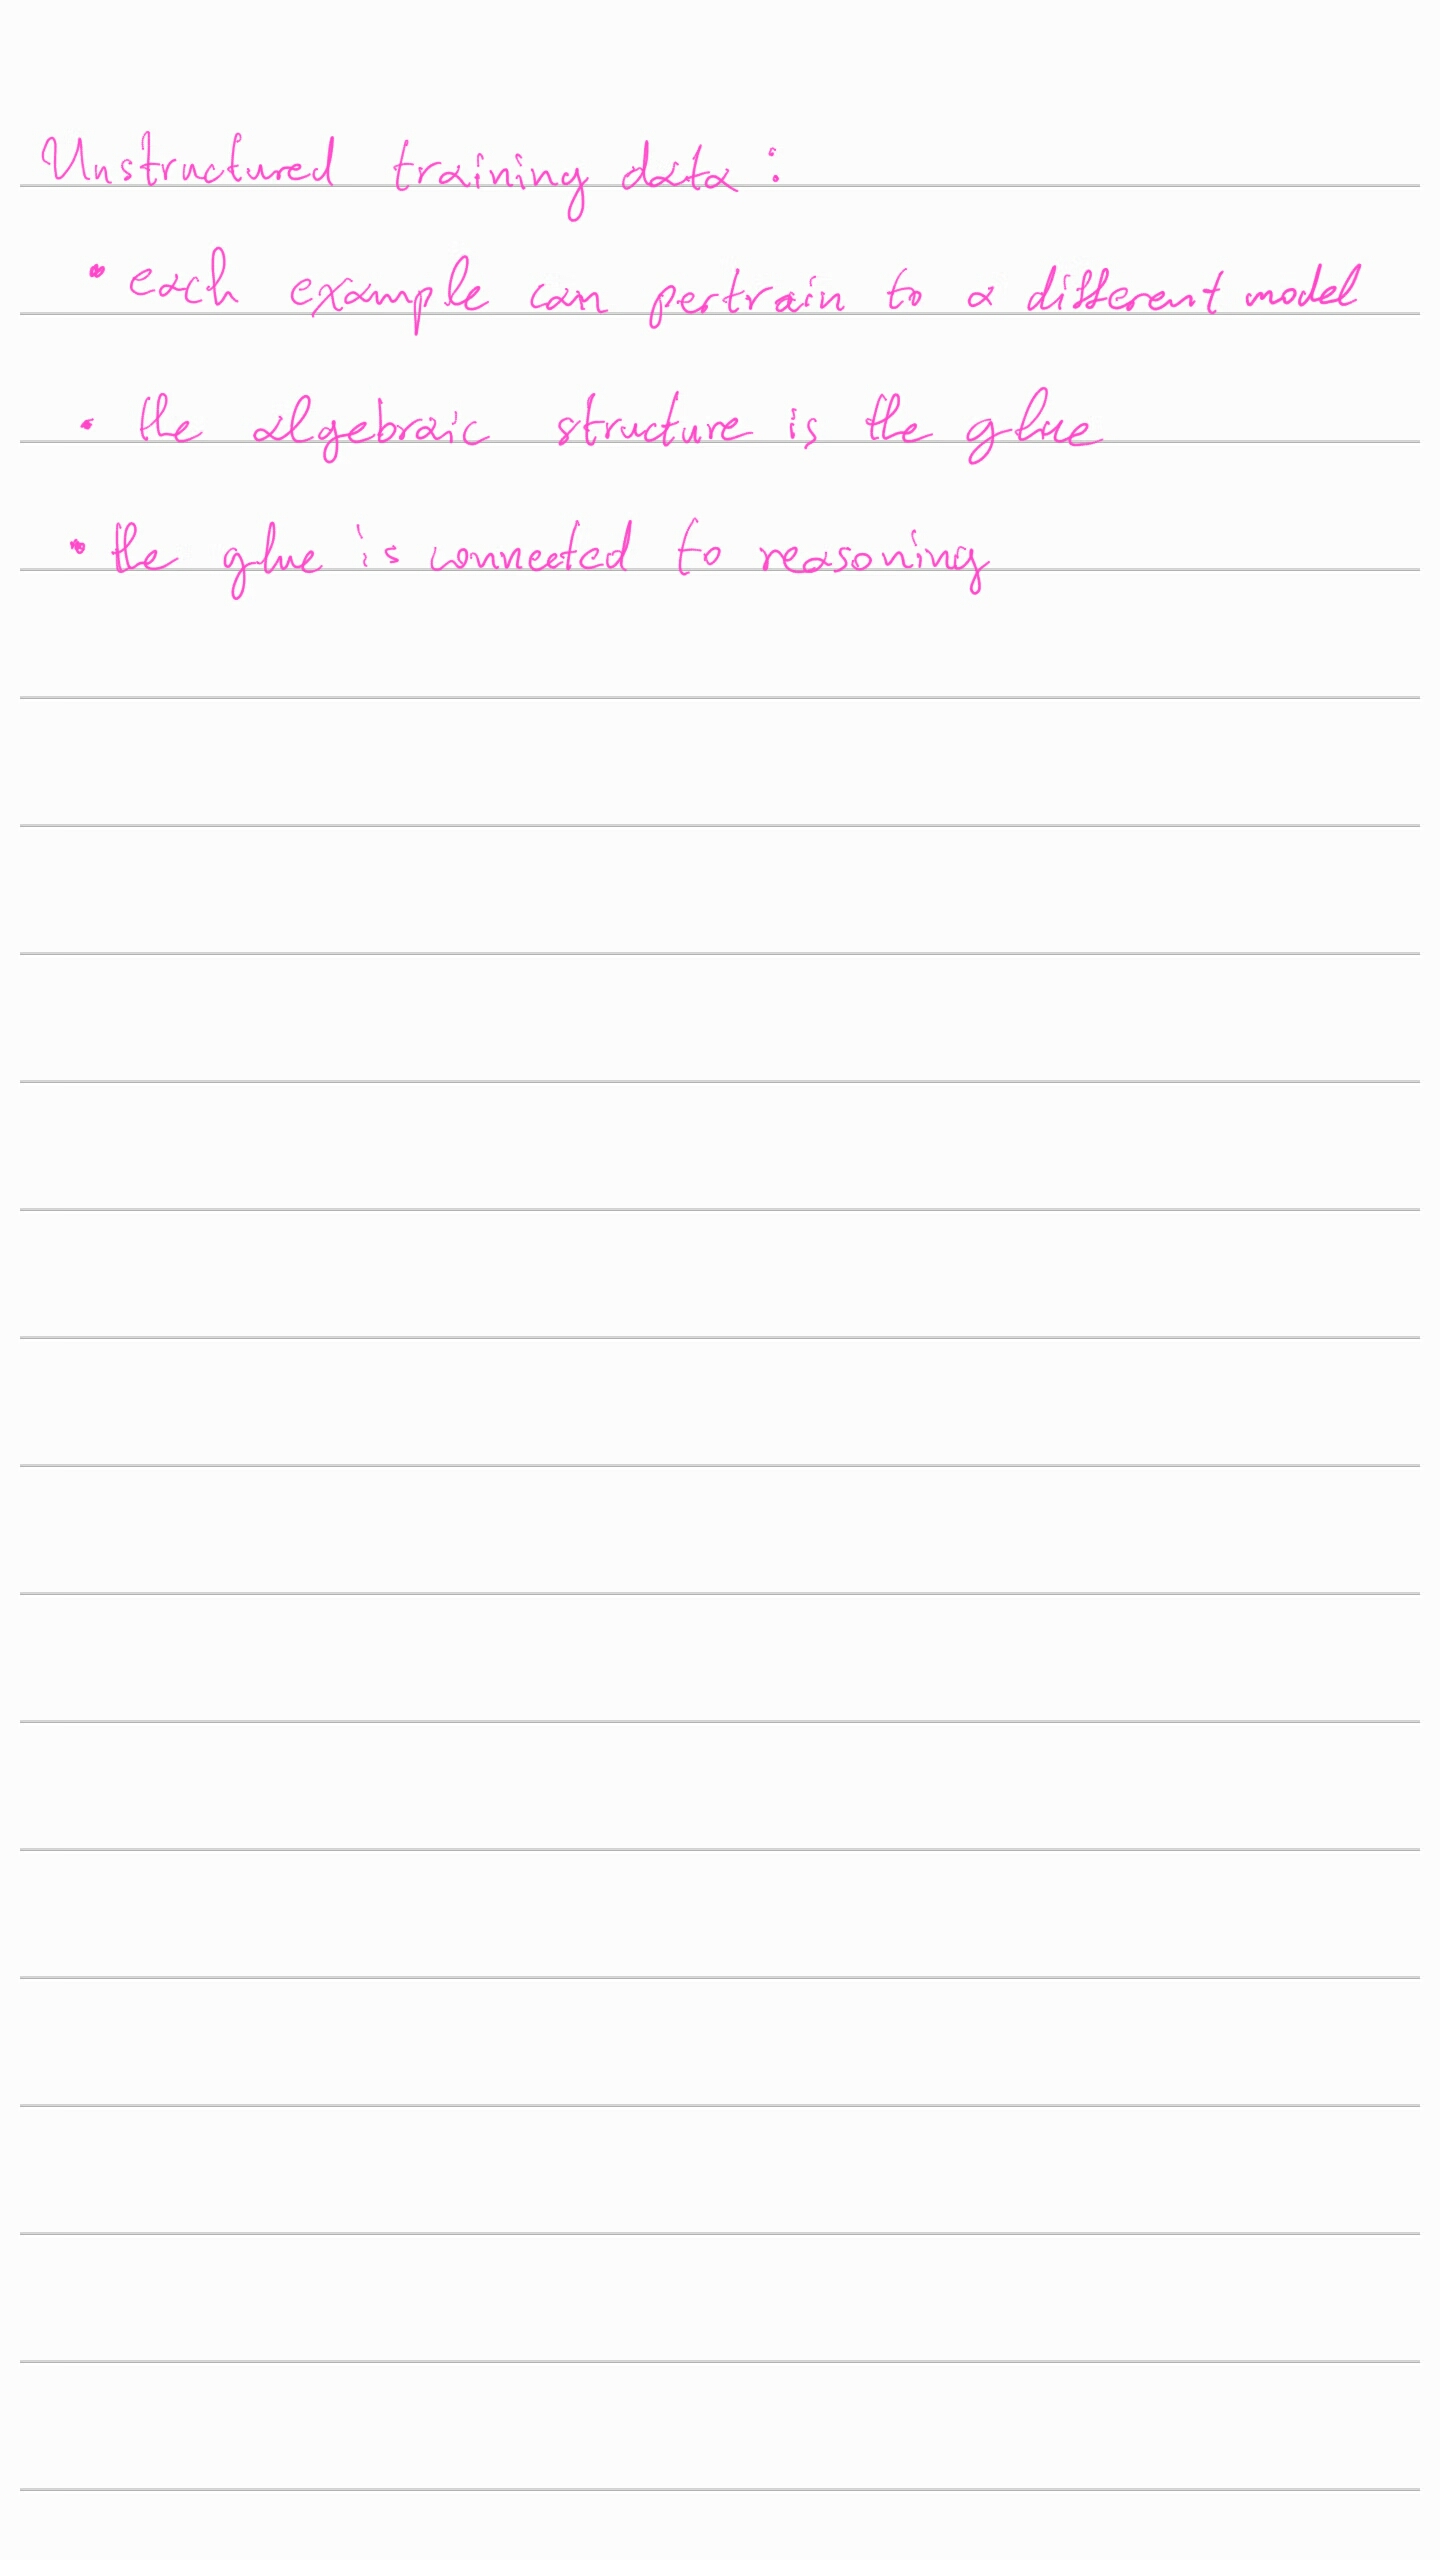 Unstructured training data :
• each example can pertrain to a different model
• the algebraic structure is the glue
• the glue is connected to reasoning